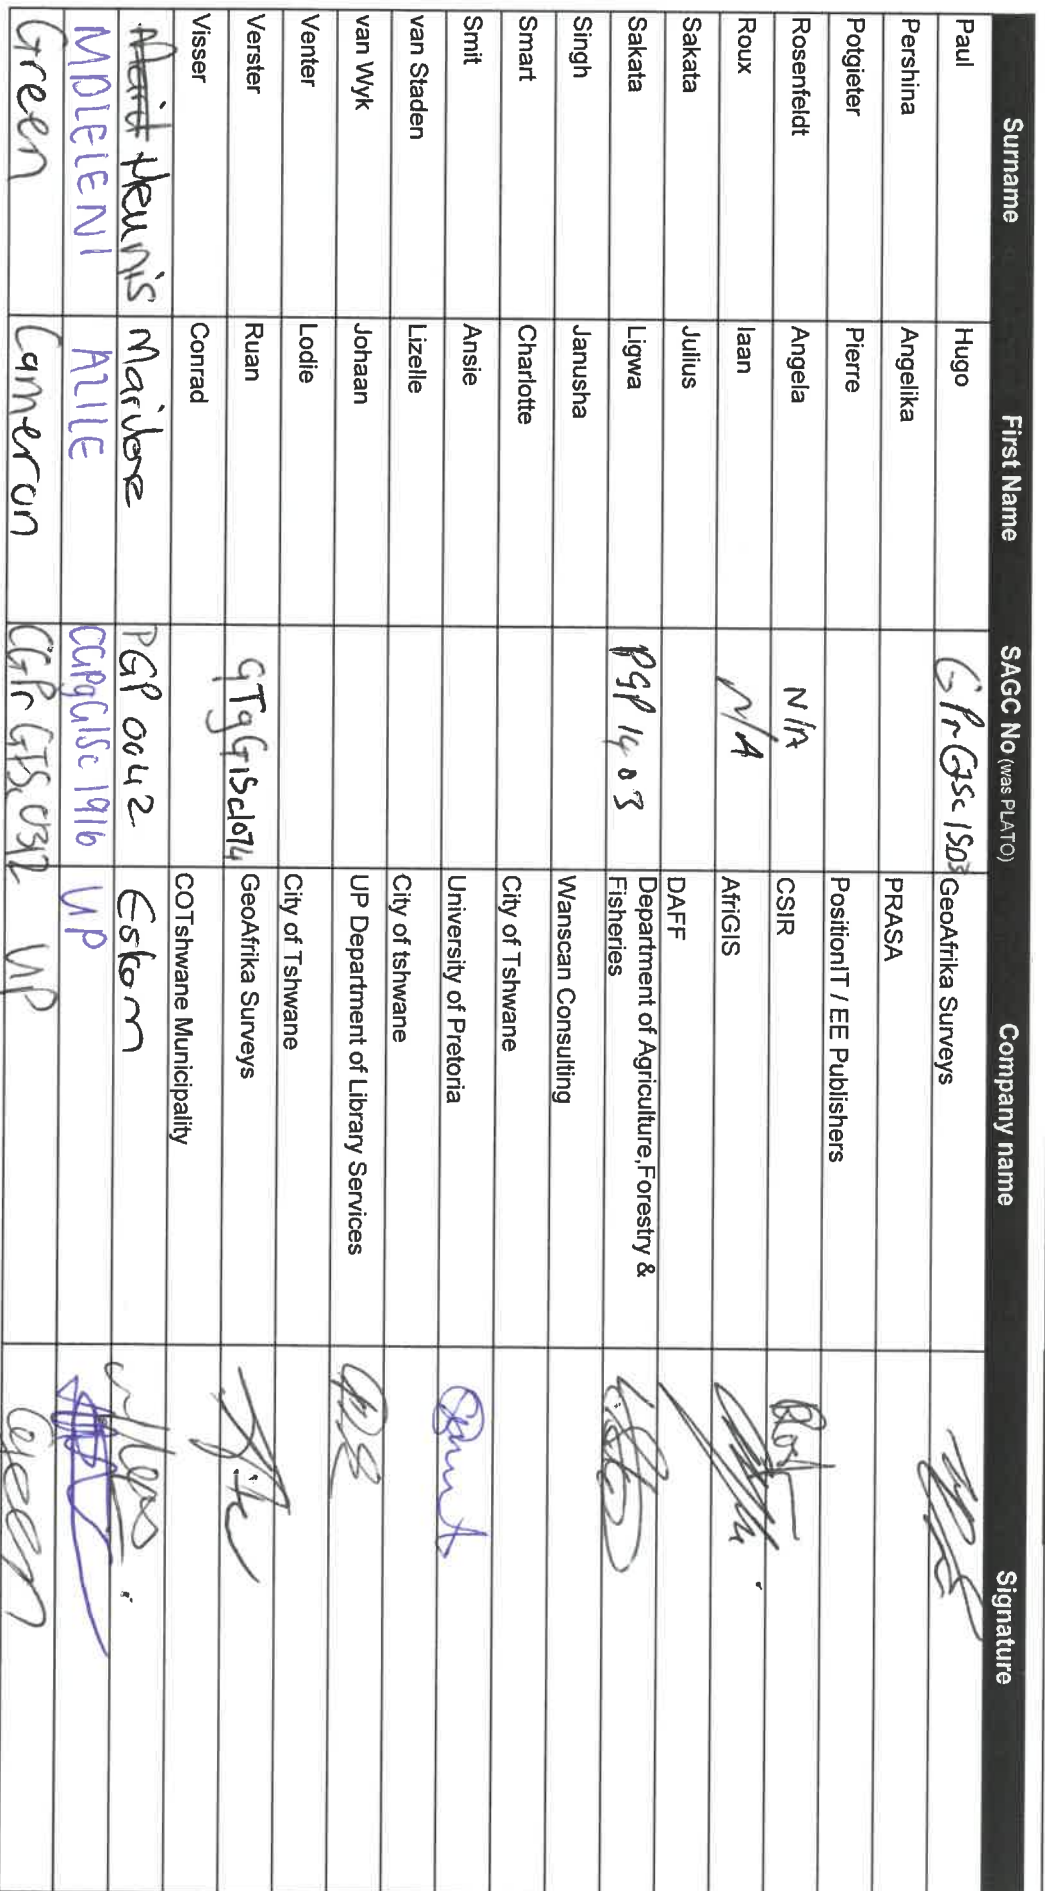 Surname First Name SAGC No (was PLATO) Company name Signature
Paul Hugo GPrGISc1503 GeoAfrika Surveys
Pershina Angelika PRASA
Potgieter Pierre PositionIT / EE Publishers
Rosenfeldt Angela N/A CSIR
Roux Iaan N/A AfriGIS
Sakata Julius DAFF
Sakata Ligwa PGP1403 Department of Agriculture,Forestry &
Fisheries
Singh Janusha Wanscan Consulting
Smart Charlotte City of Tshwane
Smit Ansie University of Pretoria
van Staden Lizelle City of tshwane
van Wyk Johaan UP Department of Library Services
Venter Lodie City of Tshwane
Verster Ruan GTgGISc1074 GeoAfrika Surveys
Visser Conrad COTshwane Municipality
Heunis Marilore PGP0042 Eskom
MDLELENI AZILE CGPgGISc1916 UP
Green Cameron CGPrGISc0312 UP Green